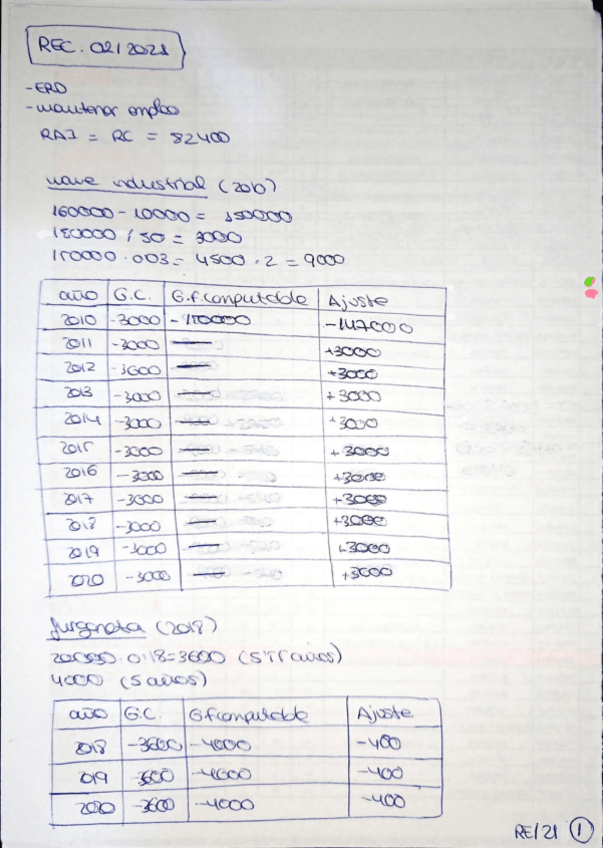 REC. 02/2021
- ERD
- mantener empleo
RAI = RC = 82400
nave industrial (2010)
160000 - 10000 = 150000
150000 / 50 = 3000
150000 · 003 = 4500 · 2 = 9000
año G.C. G.f.computable Ajuste
2010 -3000 -150000 -147000
2011 -3000 — +3000
2012 -3000 — +3000
2013 -3000 — +3000
2014 -3000 — +3000
2015 -3000 — +3000
2016 -3000 — +3000
2017 -3000 — +3000
2018 -3000 — +3000
2019 -3000 — +3000
2020 -3000 — +3000
furgoneta (2018)
20000 · 0'18 = 3600 (5'55 años)
4000 (5 años)
año G.C. G.f.computable Ajuste
2018 -3600 -4000 -400
2019 -3600 -4000 -400
2020 -3600 -4000 -400
RE/21 1